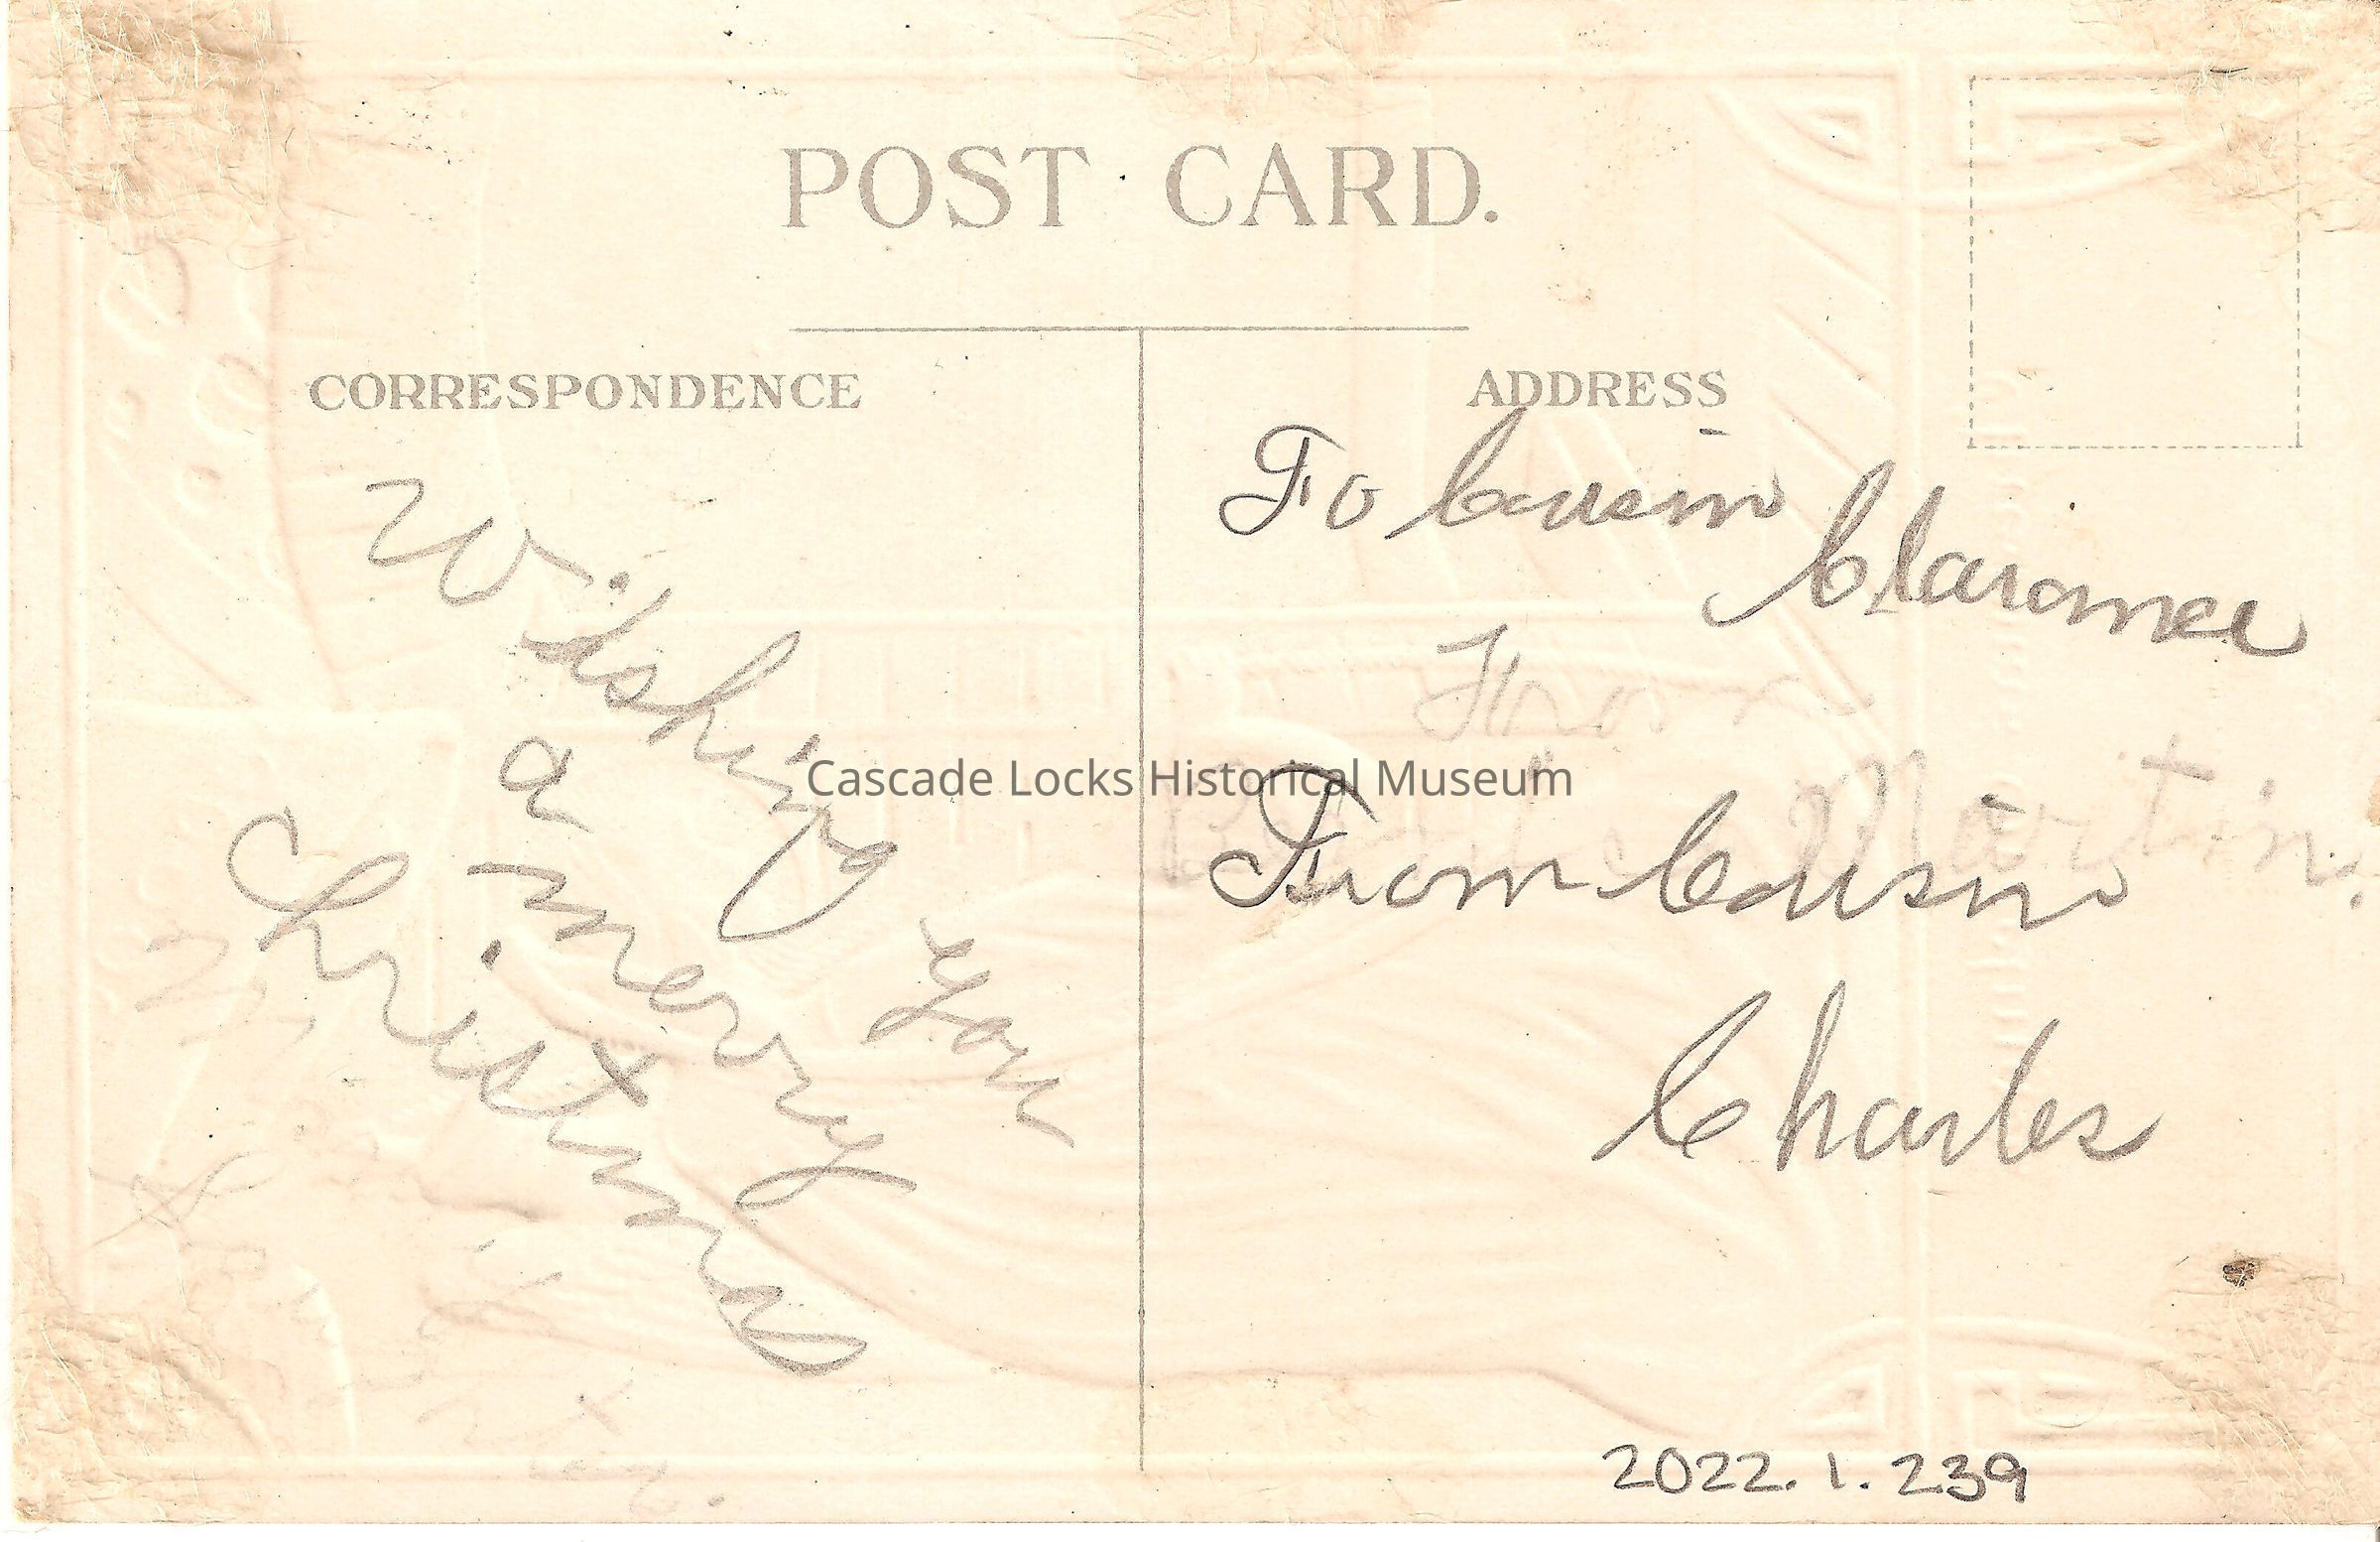 POST CARD.
CORRESPONDENCE
Wishing you
a merry
Christmas
ADDRESS
To Cousin
From
Martin.
From Cousin
Charles
Cascade Locks Historical Museum
2022.1.239